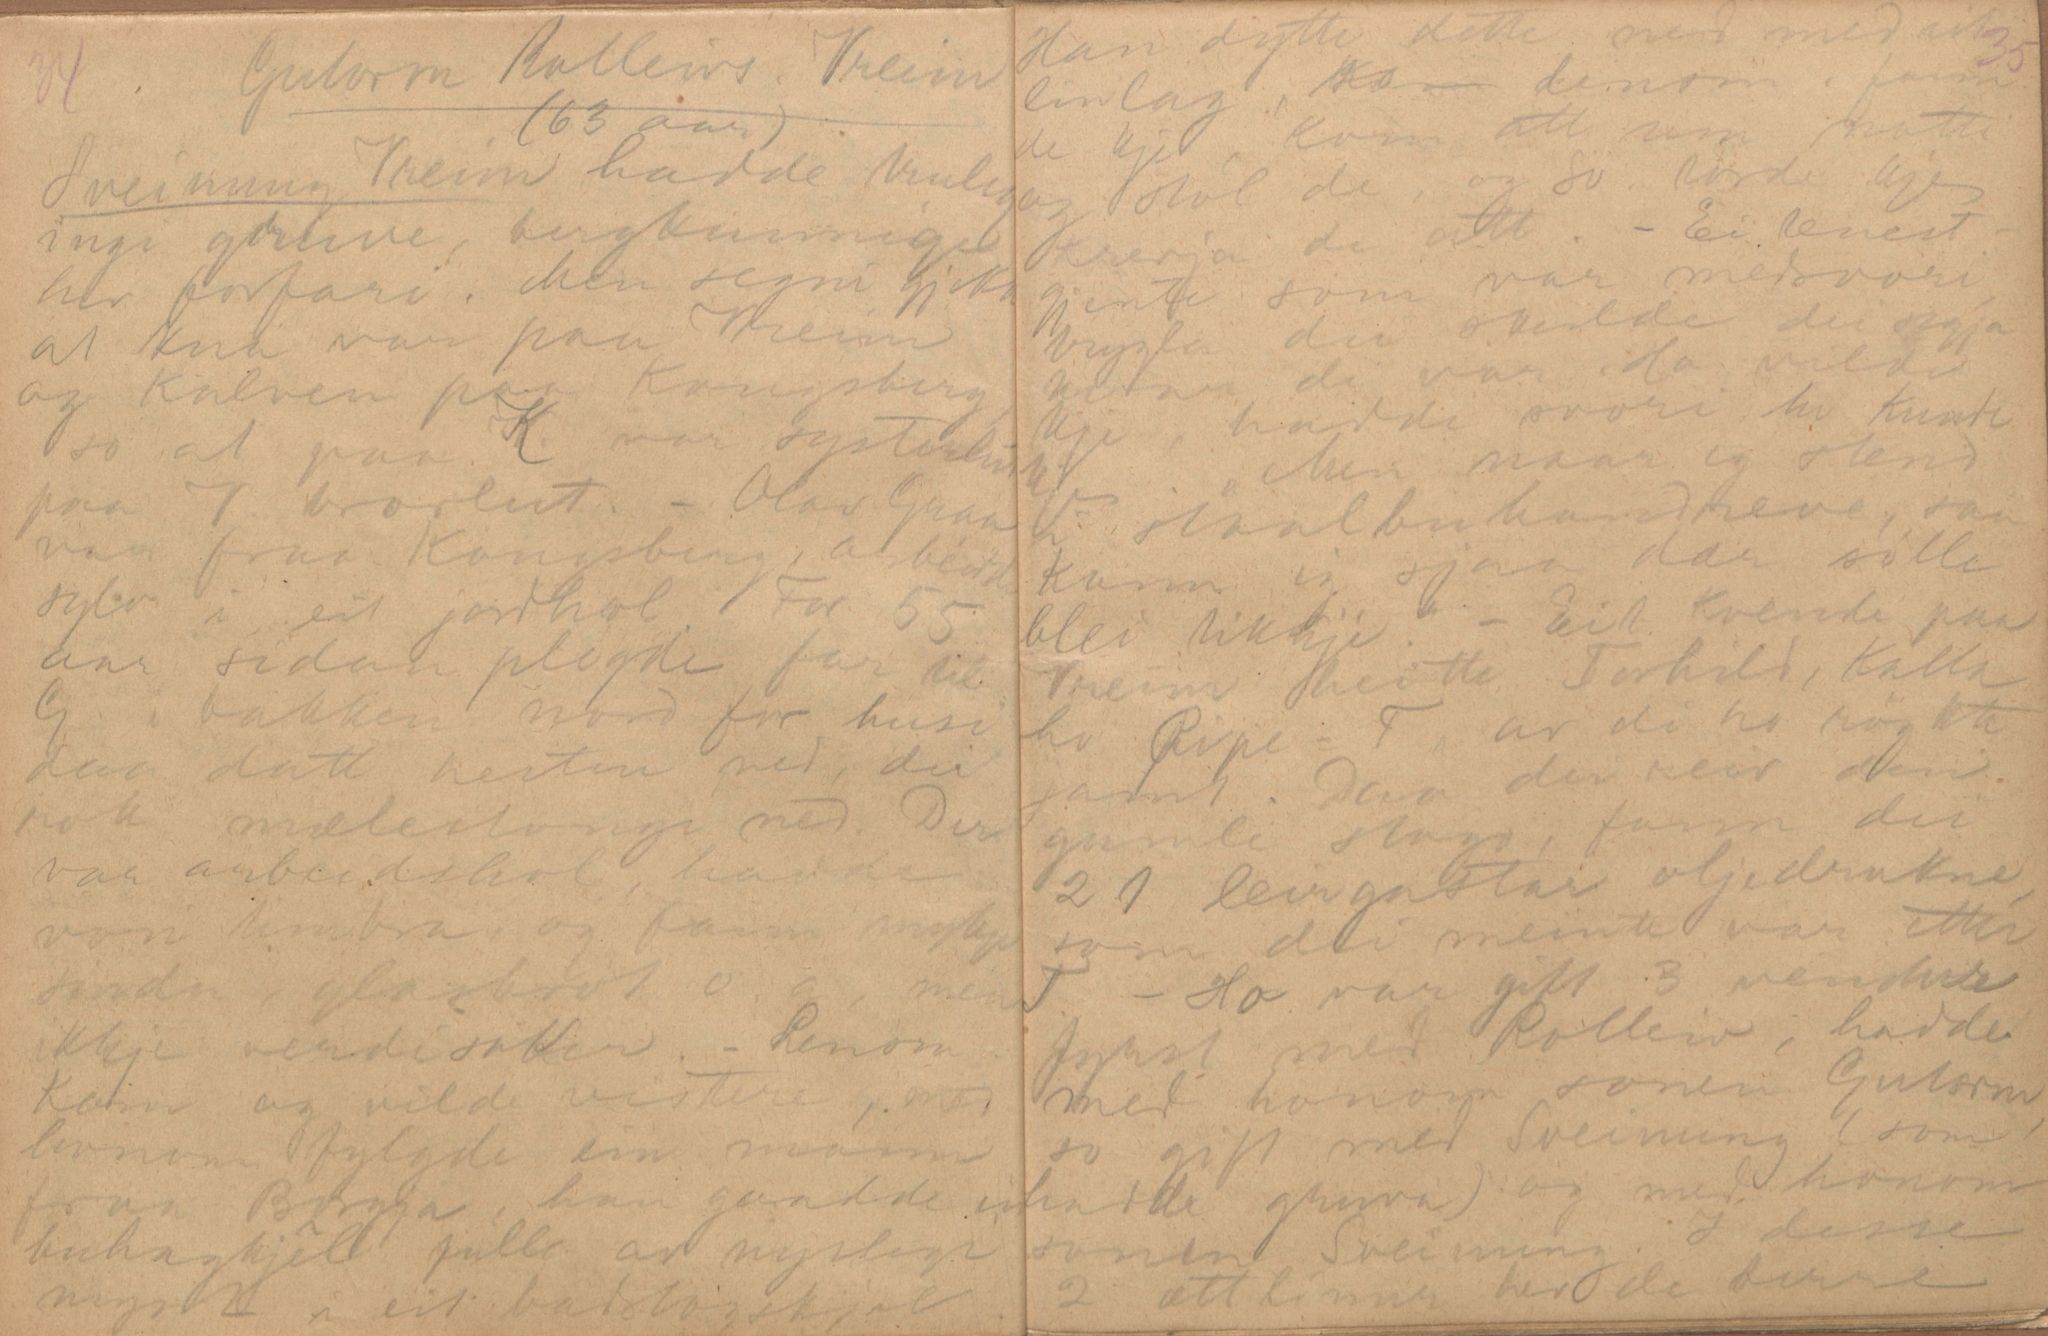 34
Gutorm Rolleivs. Vreim
(63 aar)
Sveinung Vreim hadde truleg
ingi gruve, bergkunnige
her forfari. Men segni gjekk
at kua var paa Vreim
og Kalven paa Kongsberg
so at paa K var systerlut
paa V brorlut. - Olav Graa
var fraa Kongsberg, arbeidde
sylv i eit jordhol. For 55
aar sidan plegde far til
G i bakken nord for husi
daa datt hesten ned, dei
rak mælestongi ned. Der
var arbeidshol, hadde
vori timbra, og fann mykje
sindr, glasbrot o. a, men
ikkje verdisaker. - Lensm.
kom og vilde vistere, med
honom fylgde ein mann
fraa Borgja, han gaadde ei
buhagkjel fulle av nyslegi
mynt i eit badstogskjol
35
Han dytte dette ned med eit
einlag, denom, fann
de kje, kom att um notti
og stol de, og so torde kje
krevja de att. - Ei tenest-
gjente som var medsvori,
trygla dei skulde dei segja
kven de var. Ho vilde
kje, hadde svori ho kunde
kje. "Men naar eg stend
i staalbuhandreve, saa
kann eg sjaa dær sølle
blei tikkje." - Eit kvende paa
Vreim heitte Torhild, kalla
ho Pipe-T, av di ho røykte
jamt. Daa dei reiv den
gamle stogo, fann dei
21 leirgastar oljedrukne,
som dei meinte var etter
T - Ho var gift 3 vendur
fyrst med Rolleiv, hadde
med honom sonen Gutorm,
so gift med Sveinung (som
hadde gruva) og med honom
sonen Sveinung. I desse
2 ættlinur her de turre